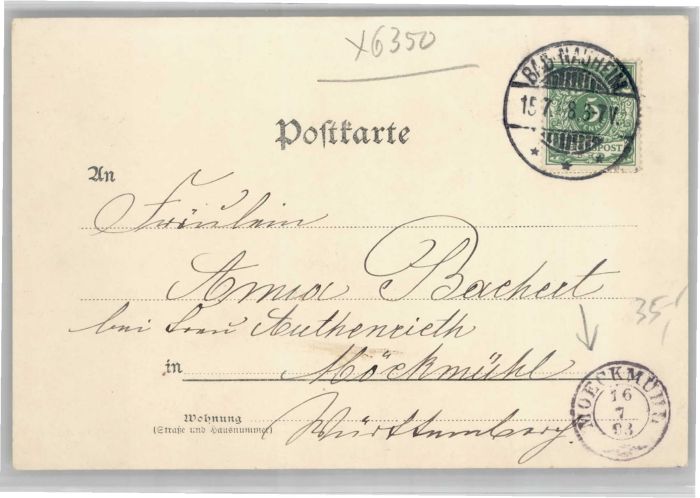 x6350
BAD-NAUHEIM
15.7. 8.5-7V.
5
POST
Postkarte
An
Fräulein
Anna Bachert
bei Frau Authenrieth
35,-
in Möckmühl
MOECKMÜHL
16
7
93
Wohnung
(Straße und Hausnummer)
Württemberg.